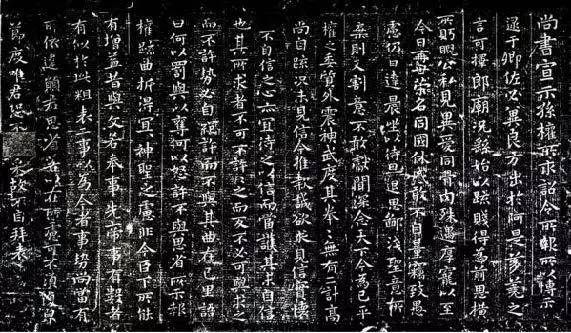 尚書宣示孫權所求詔令所報所以博示
逮于卿佐必冀良方出於阿是芻蕘之
言可擇郎廟況繇始以疏賤得為前恩橫
所盼睨公私見異愛同骨肉殊遇厚寵以至
今日再世榮名同國休慼敢不自量竊致愚
慮仍日達晨坐以待旦退思鄙淺聖意所
棄則又割意不敢獻聞深念天下今為已平
權之委質外震神武度其拳拳無有二計高
尚自疏況未見信今推款誠欲求見信實懷
不自信之心亦宜待之以信而當護其未自信
也其所求者不可不許許之而反不必可與求之
而不許勢必自絕許而不與其曲在己里語
曰何以罰與以奪何以怒許不與思省所示報
權疏曲折得宜宜神聖之慮非今臣下所能
有增益昔與文若奉事先帝事有數者
有似於此粗表二事以為今者事勢尚當有
所依違願君思省若以在所慮可不須復
節度唯君恐不采故不自拜表